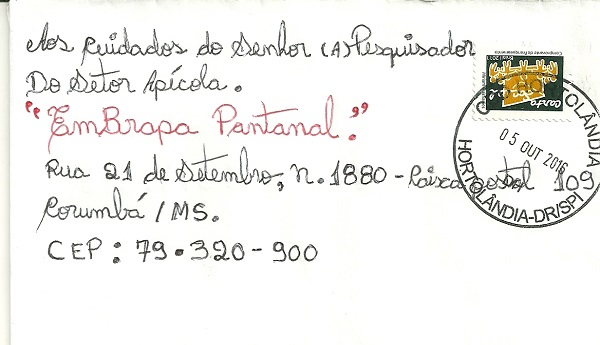 Aos Cuidados do Senhor (A) Pesquisador
Do Setor Apícola.
"EmBrapa Pantanal."
Rua 21 de Setembro, n. 1880 - Caixa Postal 109
Corumbá / MS.
CEP: 79.320-900
05 OUT 2016
HORTOLÂNDIA-DR/SPI
Brasil 2011